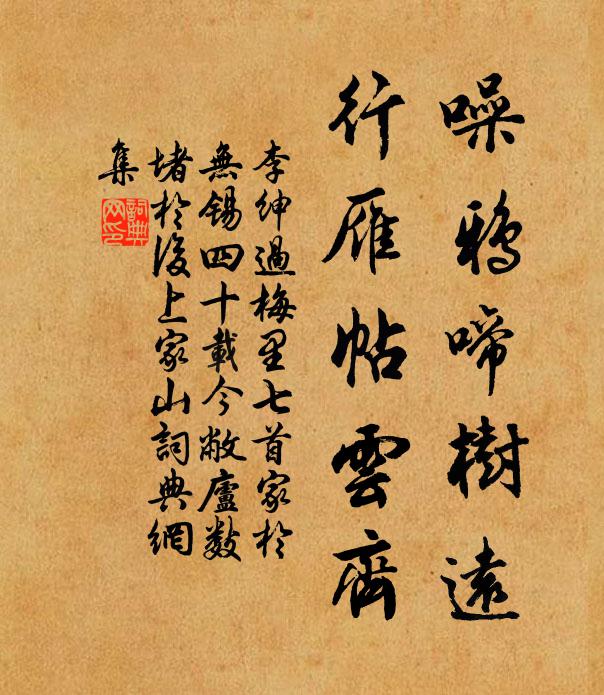 噪鴉啼樹遠
行雁帖雲齊
李紳過梅里七首家於
無錫四十載今敝廬數
堵於後上家山詞典網
集
詞典網印